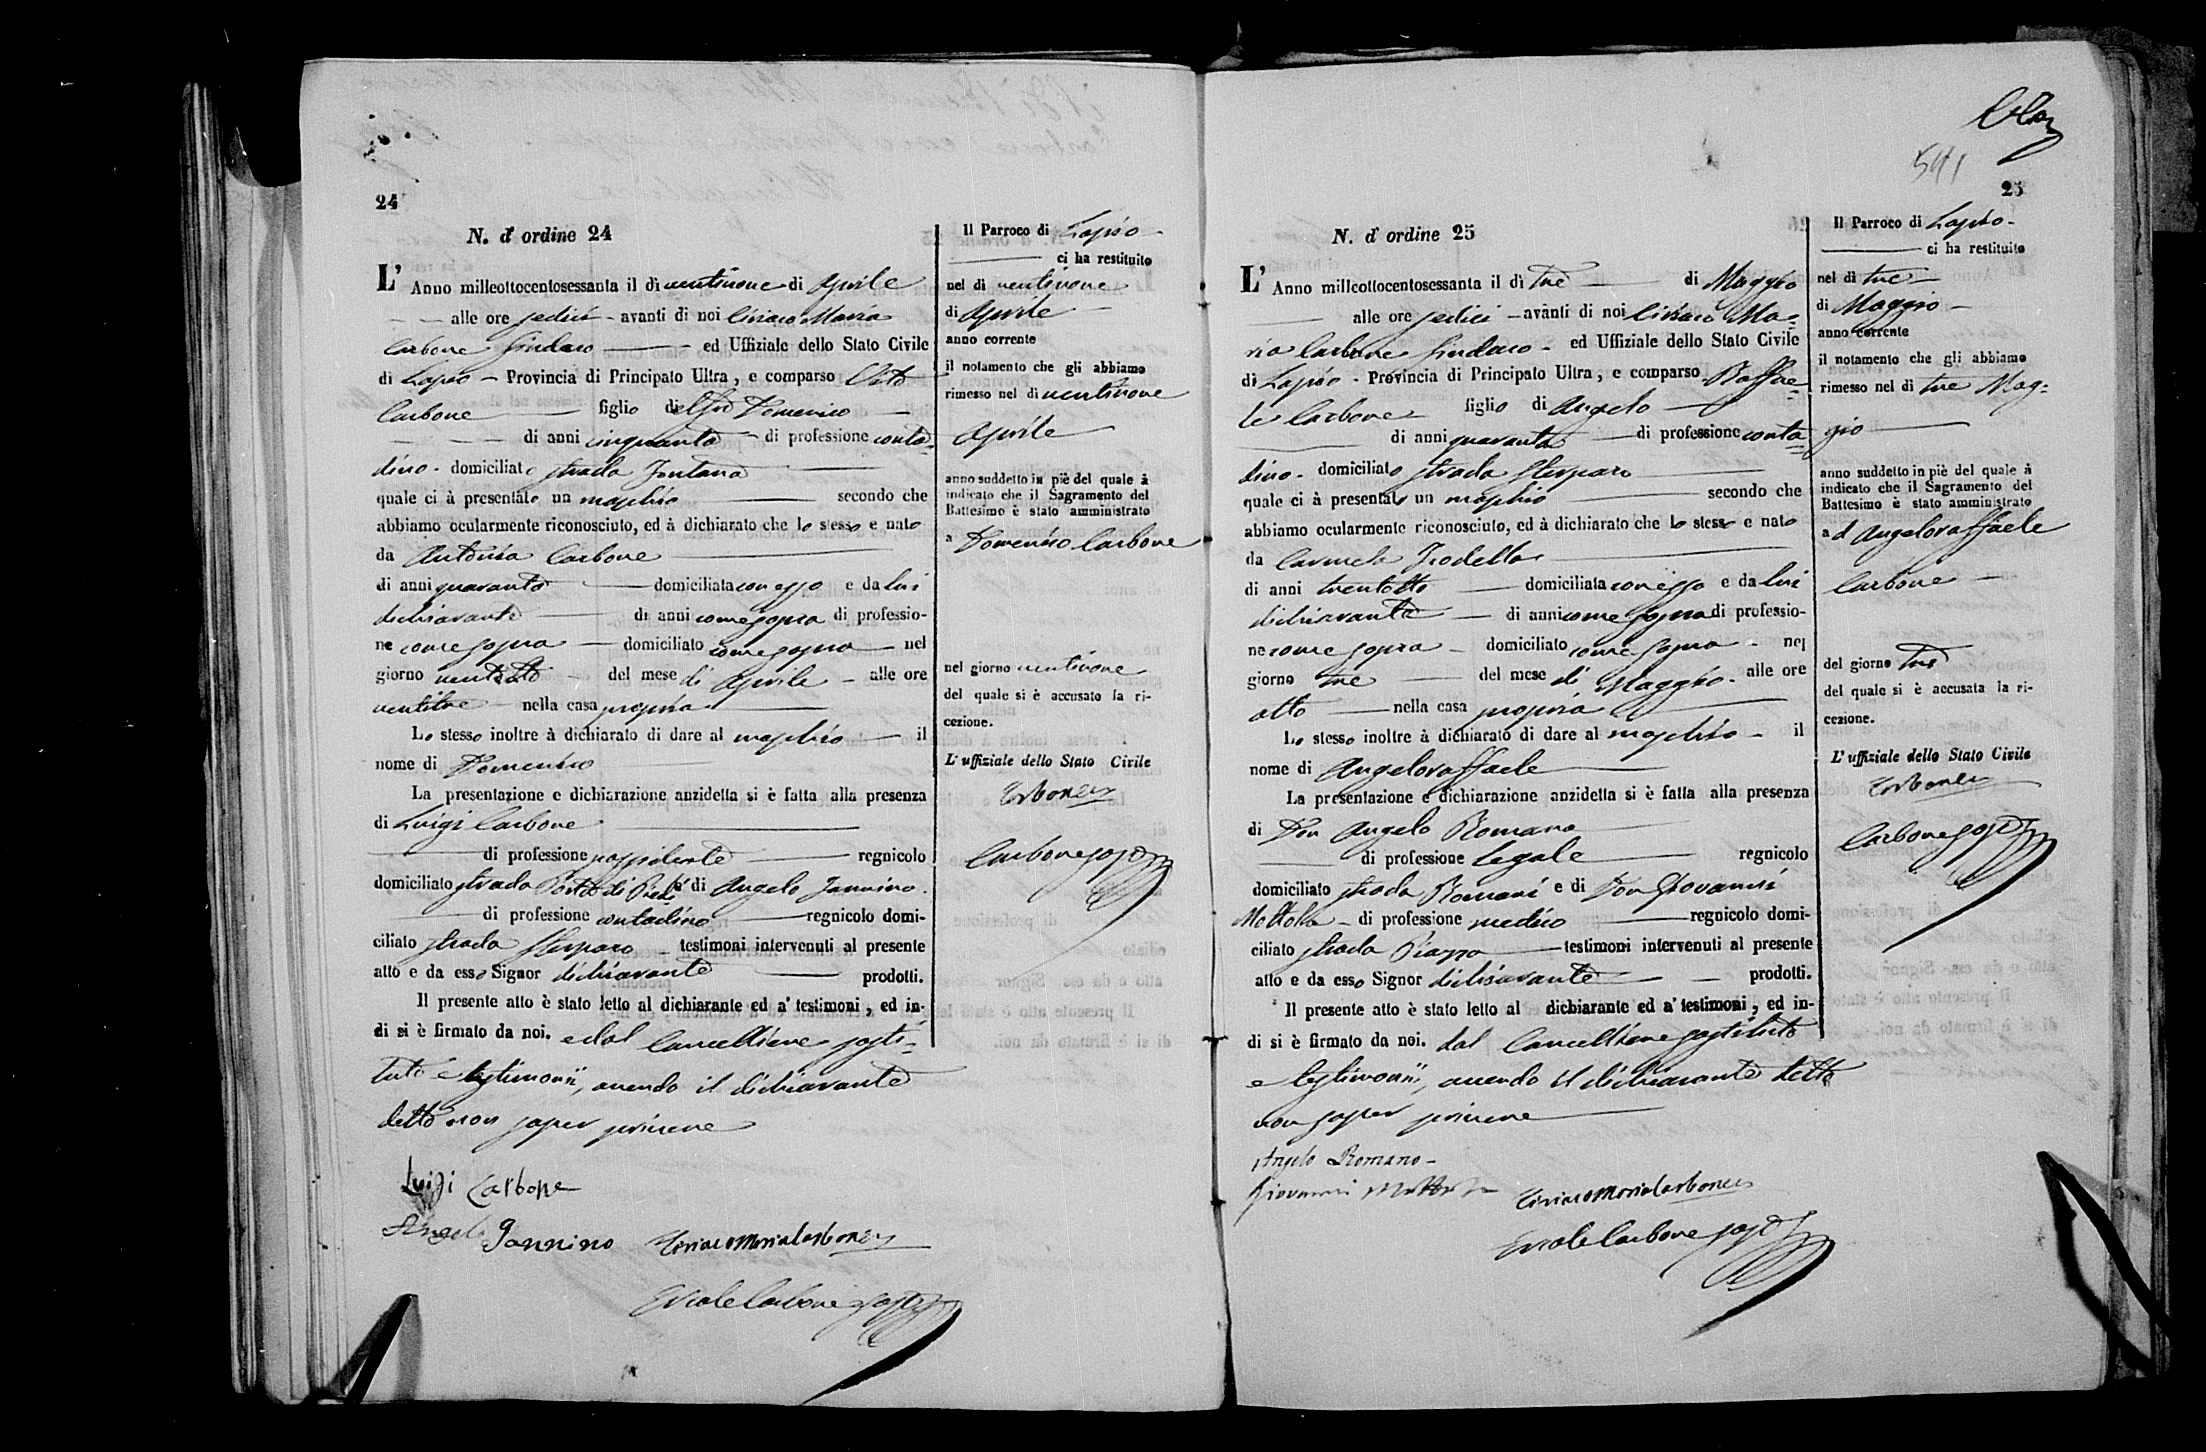 24
N. d' ordine 24
L' Anno milleottocentosessanta il dì ventinove di Aprile
alle ore sedici avanti di noi Ciriaco Maria
Carbone Sindaco ed Uffiziale dello Stato Civile
di Lapio Provincia di Principato Ultra, e comparso Vito
Carbone figlio del fu Domenico
di anni cinquanta di professione conta=
dino domiciliato strada Fontana
quale ci à presentato un maschio secondo che
abbiamo ocularmente riconosciuto, ed à dichiarato che lo stesso e nato
da Antonia Carbone
di anni quaranta domiciliata con esso e da lui
dichiarante di anni come sopra di professio-
ne come sopra domiciliato come sopra nel
giorno ventotto del mese di Aprile alle ore
ventitre nella casa propria
Lo stesso inoltre à dichiarato di dare al maschio il
nome di Domenico
La presentazione e dichiarazione anzidetta si è fatta alla presenza
di Luigi Carbone
di professione possidente regnicolo
domiciliato strada Porta di Piedi e di Angelo Jannino
di professione contadino regnicolo domi-
ciliato strada testimoni intervenuti al presente
atto e da esso Signor dichiarante prodotti.
Il presente atto è stato letto al dichiarante ed a' testimoni, ed in-
di si è firmato da noi. e dal Cancelliere sosti=
tuto e testimonii, avendo il dichiarante
detto non saper scrivere
Luigi Carbone
Angelo Jannino Ciriaco Maria Carbone
Ercole Carbone sost
Il Parroco di Lapio
ci ha restituito
nel dì ventinove
di Aprile
anno corrente
il notamento che gli abbiamo
rimesso nel dì ventinove
Aprile
anno suddetto in piè del quale à
indicato che il Sagramento del
Battesimo è stato amministrato
a Domenico Carbone
nel giorno ventinove
del quale si è accusato la ri-
cezione.
L' uffiziale dello Stato Civile
Carbone
Carbone sost
541
25
N. d' ordine 25
L' Anno milleottocentosessanta il dì tre di Maggio
alle ore sedici avanti di noi Ciriaco Ma=
ria Carbone Sindaco ed Uffiziale dello Stato Civile
di Lapio Provincia di Principato Ultra, e comparso Raffae=
le Carbone figlio di Angelo
di anni quaranta di professione conta
dino domiciliato strada
quale ci à presentato un maschio secondo che
abbiamo ocularmente riconosciuto, ed à dichiarato che lo stesso e nato
da Carmela Trodella
di anni trentotto domiciliata con esso e da lui
dichiarante di anni come sopra di professio-
ne come sopra domiciliato come sopra nel
giorno tre del mese di Maggio alle ore
otto nella casa propria
Lo stesso inoltre à dichiarato di dare al maschio il
nome di Angeloraffaele
La presentazione e dichiarazione anzidetta si è fatta alla presenza
di Don Angelo Romano
di professione Legale regnicolo
domiciliato strada Romani e di Don Giovanni
Mottola di professione medico regnicolo domi-
ciliato strada Piazza testimoni intervenuti al presente
atto e da esso Signor dichiarante prodotti.
Il presente atto è stato letto al dichiarante ed a' testimoni, ed in-
di si è firmato da noi. dal Cancelliere sostituto
e testimonii, avendo il dichiarante detto
non saper scrivere
Angelo Romano
Giovanni Mottola Ciriaco Maria Carbone
Ercole Carbone sost
Il Parroco di Lapio
ci ha restituito
nel dì tre
di Maggio
anno corrente
il notamento che gli abbiamo
rimesso nel dì tre Mag=
gio
anno suddetto in piè del quale à
indicato che il Sagramento del
Battesimo è stato amministrato
ad Angeloraffaele
Carbone
del giorno tre
del quale si è accusata la ri-
cezione.
L' uffiziale dello Stato Civile
Carbone
Carbone sost